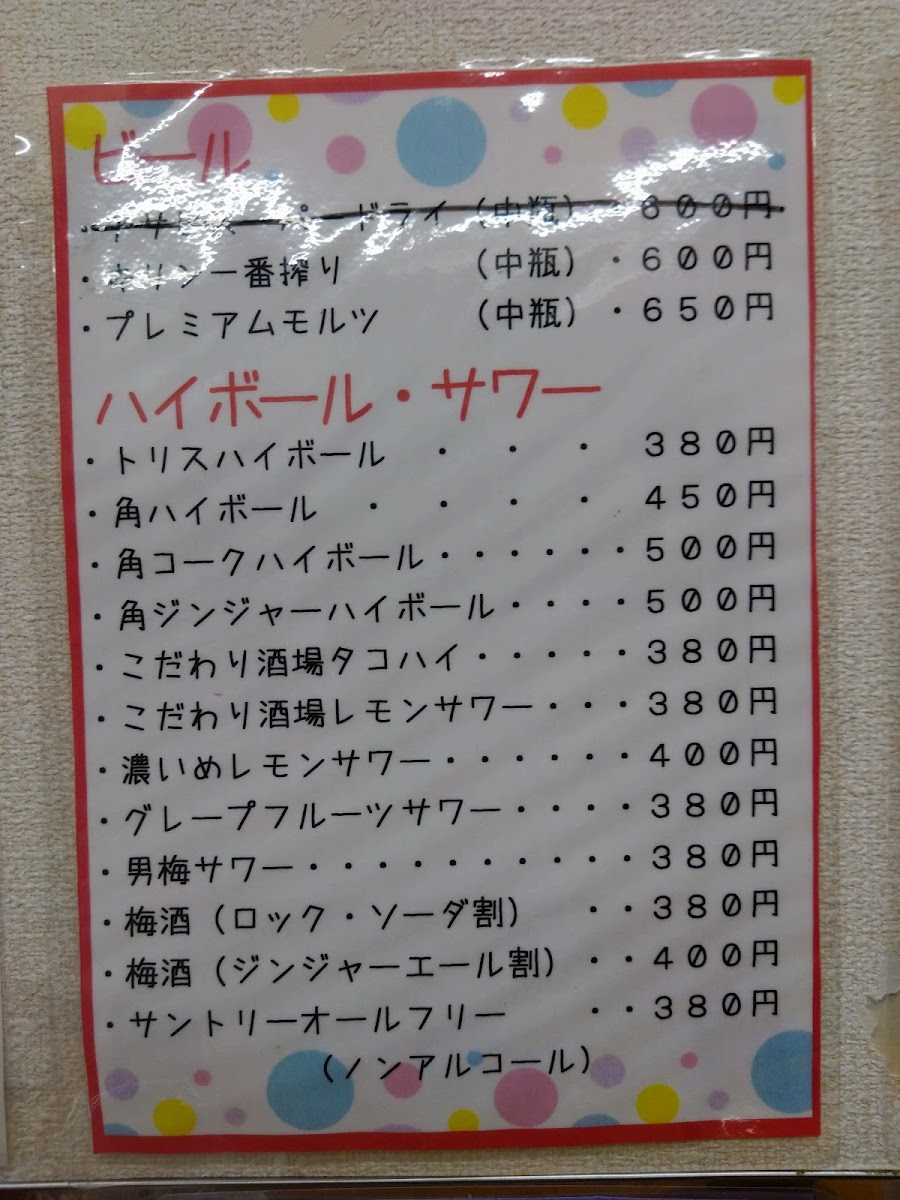 ビール
・アサヒスーパードライ（中瓶）・600円
・キリン一番搾り（中瓶）・600円
・プレミアムモルツ（中瓶）・650円
ハイボール・サワー
・トリスハイボール・・・380円
・角ハイボール・・・・450円
・角コークハイボール・・・・・・500円
・角ジンジャーハイボール・・・・500円
・こだわり酒場タコハイ・・・・・380円
・こだわり酒場レモンサワー・・・380円
・濃いめレモンサワー・・・・・・400円
・グレープフルーツサワー・・・・380円
・男梅サワー・・・・・・・・・・380円
・梅酒（ロック・ソーダ割）・・380円
・梅酒（ジンジャーエール割）・・400円
・サントリーオールフリー・・380円
（ノンアルコール）